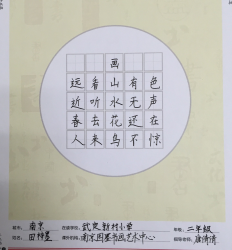 画
远看山有色
近听水无声
春去花还在
人来鸟不惊
南京 武定新村小学 二年级
南京田墨书画艺术中心